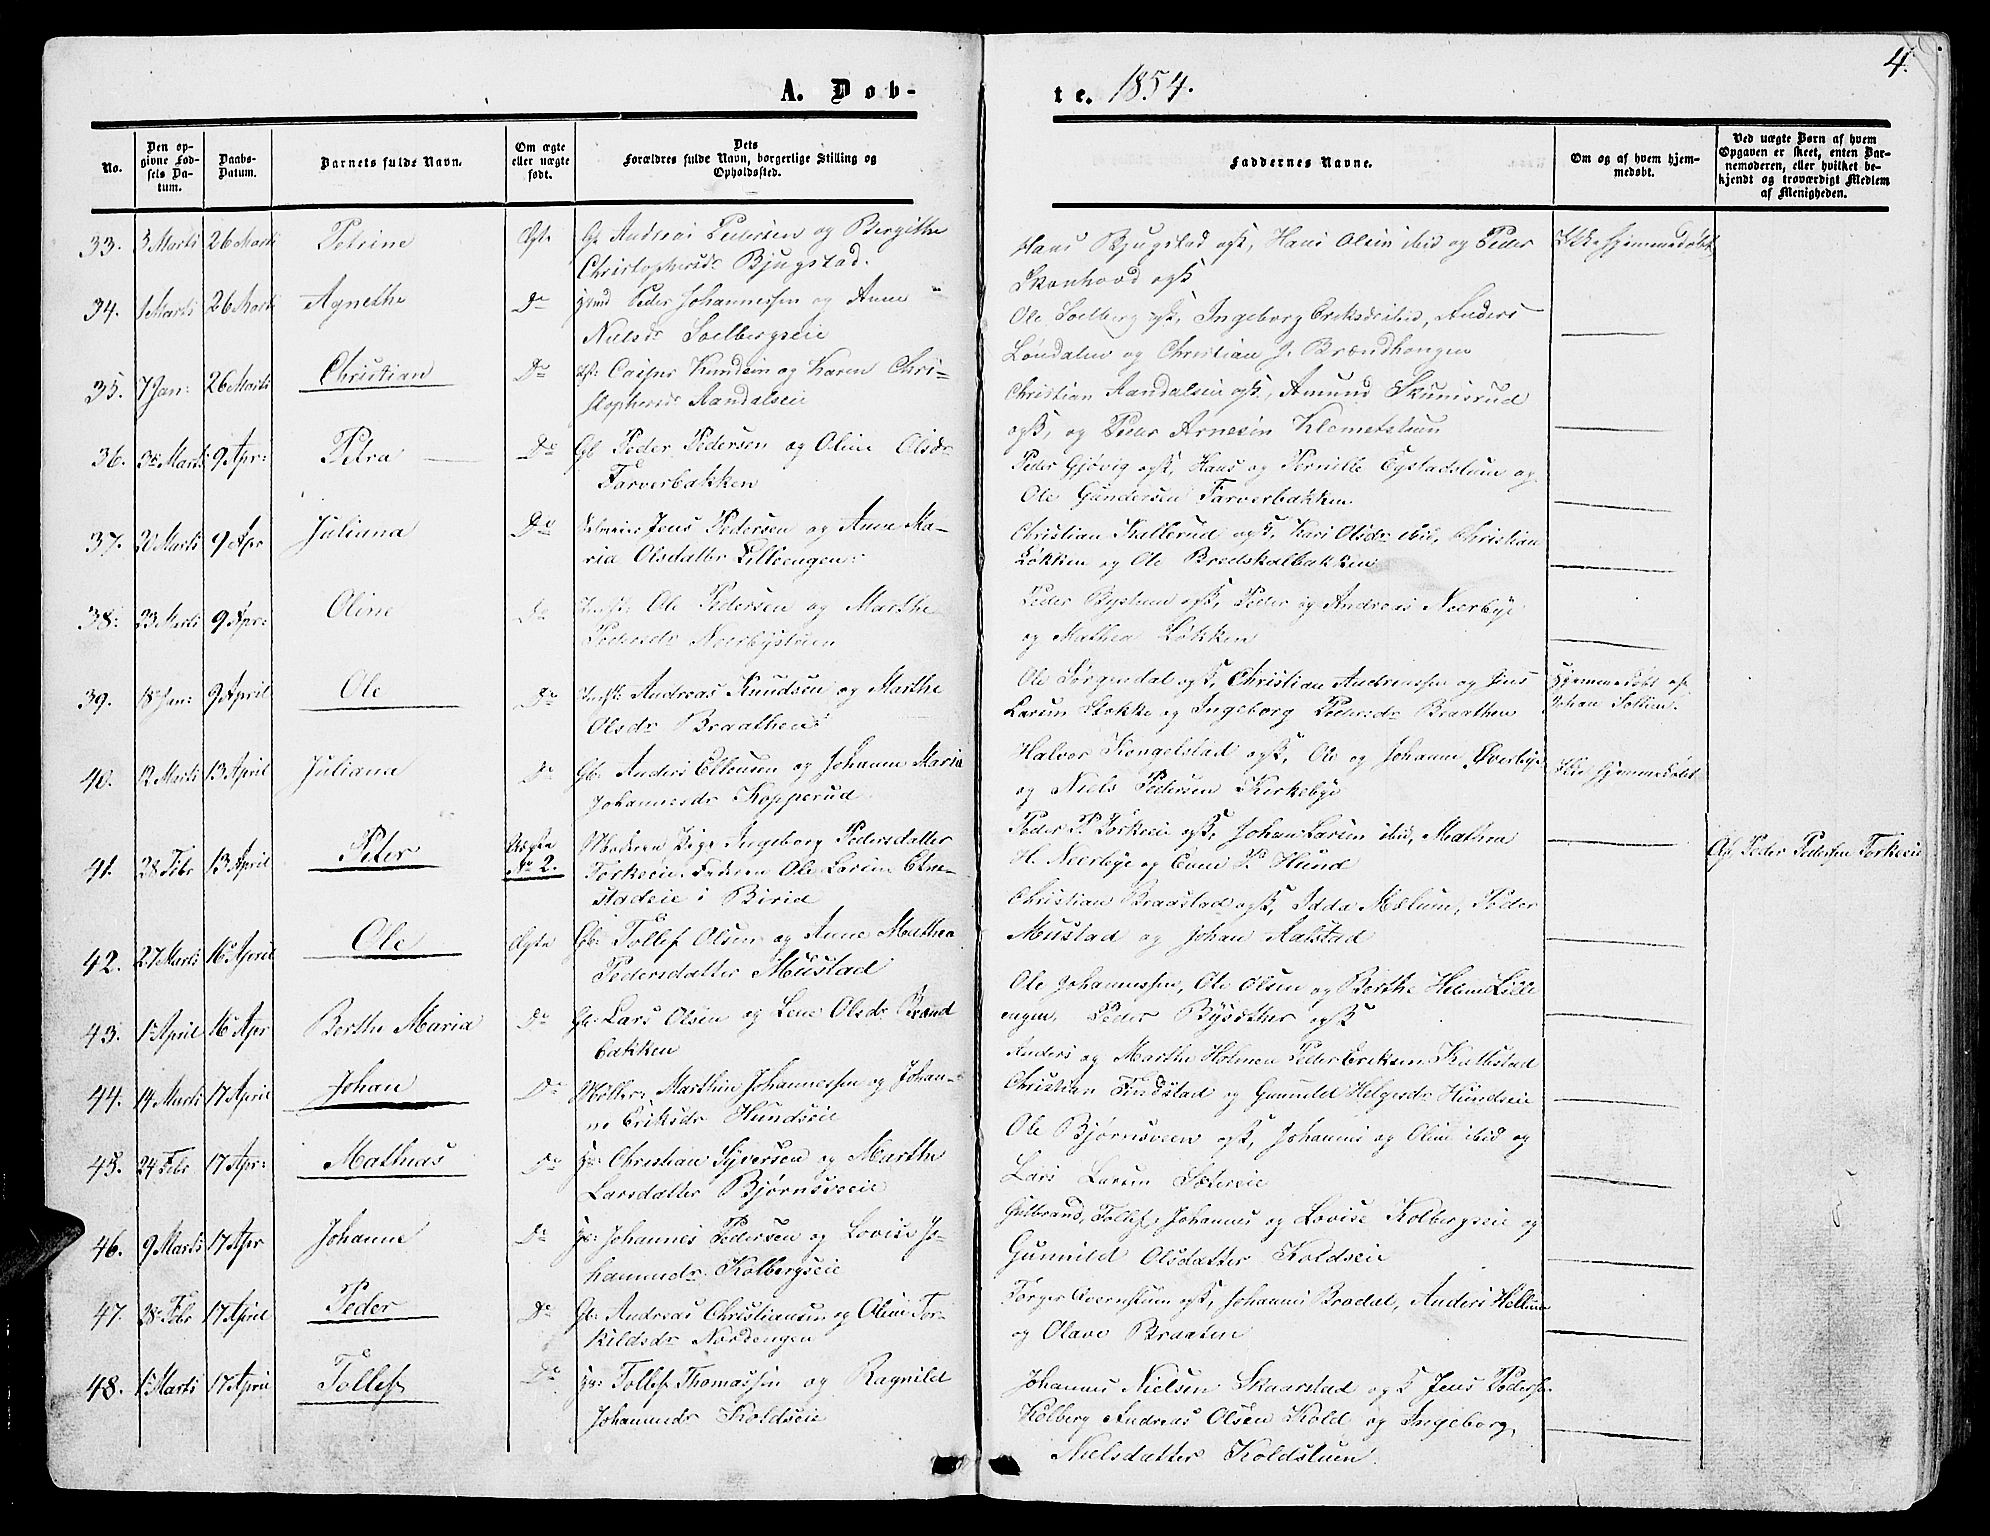 4.
A. Døb-
te. 1854.
No.
Den op-
givne Fød-
sels Da-
tum.
Daabs-
Datum.
Barnets fulde Navn.
Om ægte
eller uægte
født.
Dets
Forældres fulde Navn, borgerlige Stilling og
Opholdssted.
Faddernes Navne.
Om og af hvem hjem-
medøbt.
Ved uægte Børn af hvem
Opgaven er skeet, enten Bar-
nemoderen, eller hvilket be-
kjendt og troværdigt Medlem
af Menigheden.
33. 3 Marts 26 Marts Petrine Ægte Andreas Pedersen og Bergithe
Christophersdr Bjugstad.
Hans Bjugstad ogsk, Hans Olsen ibid og Peder
Skonhovd ogsk
Ikke hjemmedøbt
34. 1 Marts 26 Marts Agnethe Do Peder Johannessen og Anne
Nielsdr Soelbergseie
Ole Soelberg ogsk, Ingeborg Eriksdr ibid, Anders
Løndalen og Christian J. Brændhongen
35. 7 Jan: 26 Marts Christian Do Casper Knudsen og Karen Chri-
stophersdr Aandalseie
Christian Aandalseie ogsk, Amund Skumsrud
ogsk, og Peder Arnesen Klemetstuen
36. Marts 9 Apr: Petra Do Gb Peder Pedersen og Oline Olsdr
Farverbakken
Peder Gjøvig ogsk, Hans og Pernille Eystadstuen og
Ole Gundersen Farverbakken
37. 20 Marts 9 Apr Juliana Do Jens Pedersen og Anne Ma-
ria Olsdatter Lilleengen
Christian Skellerud ogsk, Kari Olsdr ibid, Christian
Løkken og Ole Bredskalbakken
38. 23 Marts 9 Apr: Oline Do Inds: Ole Pedersen og Marthe
Pedersdr Neerbystuen
Peder Bystuen ogsk, Peder og Andreas Neerbye
og Mathea Løkken
39. 18 Jan: 9 April Ole Do Inds: Andreas Knudsen og Marthe
Olsdr Braathen
Ole Sørgendal ogsk, Christian Andreassen og Jens
Larsen Stokke og Ingeborg Pedersdr Braathen
Hjemmedøbt af
Johan
40. 12 Marts 13 April Juliana Do Gb: Anders Ellensen og Johanne Maria
Johannesdr Kopperud
Halvor Kongelstad ogsk, Ole og Johanne Øverbye
og Niels Pedersen Kirkebye
Ikke hjemmedøbt
41. 28 Febr 13 April Peter Uægte No 2. Moderen Pige Ingeborg Pedersdatter
Torkseie. Faderen Ole Larsen
stadeie i Birid
Peder P. Torkseie ogsk, Johan Larsen ibid, Mathea
H. Neerbye og Even P. Hund
Af Peder Pedersen Torkseie
42. 27 Marts 16 April Ole Ægte Gb: Tollef Olsen og Anne Mathea
Pedersdatter Mustad
Christian Braastad ogsk, Idda Mælum, Peder
Mustad og Johan Aalstad
43. 1 April 16 Apr Berthe Maria Do Gb: Lars Olsen og Lene Olsdr Brænd
bakken
Ole Johannessen, Ole Olsen og Berthe Helene Lille
engen, Peder Bysæther ogsk
44. 14 Marts 17 April Johan Do Møller: Marthin Johannessen og Johan-
ne Eriksdr Hundseie
Anders og Marthe Holmen Peder Eriksen Kalkstad
Christian Findstad og Gunnild Helgesdr Hundseie
45. 24 Febr 17 Apr: Mathias Do Christian Syversen og Marthe
Larsdatter Bjørnsveeie
Ole Bjørnsveen ogsk, Johannes og Oline ibid og
Lars Larsen Sætereie
46. 9 Marts 17 Apr Johanne Do Johannes Pedersen og Lovise Jo-
hannesdr. Kolbergseie
Gulbrand, Tollef, Johannes og Lovise Kolbergseie og
Gunnild Olsdatter Koldseie
47. 28 Febr 17 April Peder Do Gb: Andreas Christiansen og Oline Tor-
kildsdr Nordengen
Torger Evenstuen ogsk, Johannes Brodal, Anders Hellum
og Olave Braaten
48. 1 Marts 17 April Tollef Do Tollef Thomassen og Ragnild
Johannesdr Koldseie
Johannes Nielsen Skaarstad ogsk Jens Pederse
Kolberg Andreas Olsen Kold og Ingeborg
Nielsdatter Koldstuen.